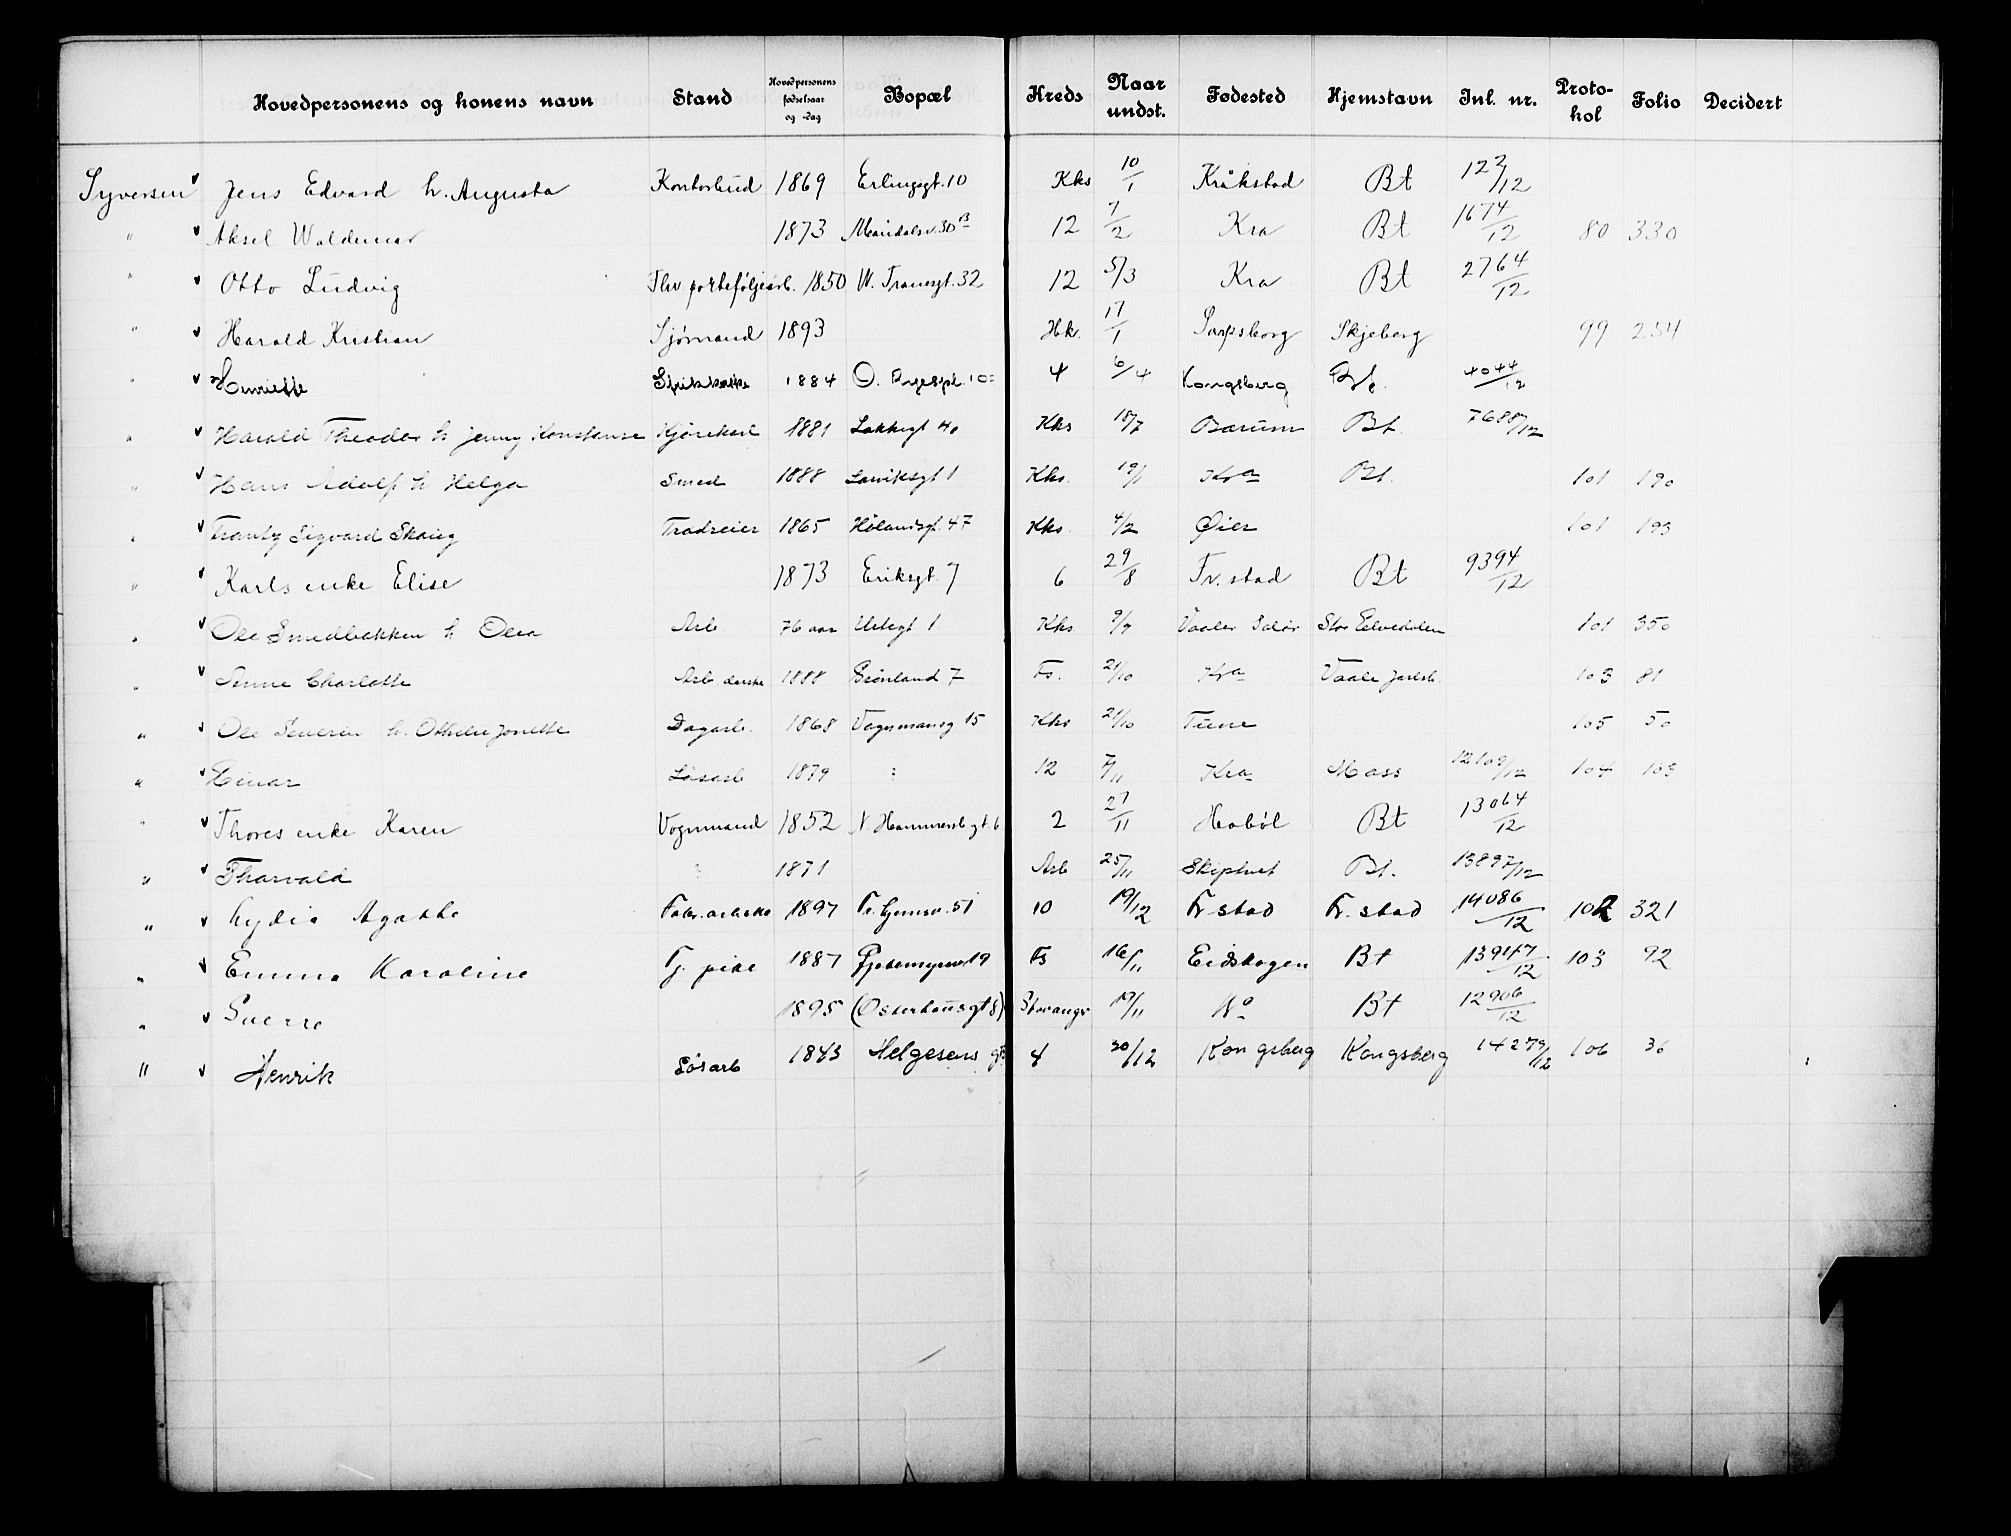 Hovedpersonens og konens navn | Stand | Hovedpersonens fødselsaar og -dag | Bopæl | Kreds | Naar undst. | Fødested | Hjemstavn | Inl. nr. | Protokol | Folio | Decidert
Syversen Jens Edvard h. Augusta | Kontorbud | 1869 | Erlingsgt. 10 | Kks | 10/1 | Kråkstad | Bt | 122/12
" Aksel Waldemar | 1873 | Maridalsv. 30 B | 12 | 7/2 | Kra | Bt | 1674/12 | 80 | 330
" Otto Ludvig | Thv. porteføljearb. | 1850 | W. Thranesgt. 32 | 12 | 5/3 | Kra | Bt | 2764/12
" Harald Kristian | Sjømand | 1893 | Hk. | 17/1 | Sarpsborg | Skjeberg | 99 | 254
" Henriette | 1884 | O. 10 | 4 | 6/4 | Kongsberg | Bt. | 4044/12
" Harald Theodor h Jenny Konstanse | Kjørekarl | 1881 | Lakkegt 40 | Kks | 18/7 | Bærum | Bt. | 7688/12
" Hans Adolf h Helga | Smed | 1888 | Larviksgt 1 | Kks. | 19/1 | Kra | Bt. | 101 | 190
" Frantz Sigvard Skaug | 1865 | Hølandsgt. 47 | Kks. | 4/2 | Øier | 101 | 193
" Karls enke Elise | 1873 | Eriksgt. 7 | 6 | 29/8 | Fr. stad | Bt | 9394/12
" Ole Smedbakken h Olea | Arb | 76 aar | Urtegt 1 | Kks | 9/7 | Vaaler Solør | Stor Elvedalen | 101 | 350
" Anne Charlotte | Arb. enske | 1888 | Grønland 7 | Fs. | 21/10 | Kra | Vaale Jarlsb. | 103 | 81
" Ole Severin h. Othelie Jonette | Dagarb. | 1868 | Vognmansg 15 | Kks | 21/10 | Tune | 105 | 50
" Einar | Løsarb | 1879 | ? | 12 | 7/11 | Kra | Moss | 12109/12 | 104 | 103
" Thores enke Karen | Vognmand | 1852 | N. Hammersb.gt. 6 | 2 | 27/11 | Hobøl | Bt | 13064/12
" Thorvald | ? | 1871 | Arb | 25/11 | Skiptvet | Bt. | 13897/12
" Lydia Agathe | Fabr. arbeske | 1897 | 51 | 10 | 19/12 | Fr stad | Fr. stad | 14086/12 | 102 | 321
" Emma Karoline | Tj. pike | 1887 | 19 | Fs | 16/11 | Eidskogen | Bt | 13947/12 | 103 | 92
" Sverre | 1895 | (Osterhausgt 8) | Stavanger | 19/11 | No | Bt | 12906/12
" Henrik | Løsarb | 1843 | Helgesens gt | 4 | 30/12 | Kongsberg | Kongsberg | 14279/12 | 106 | 36